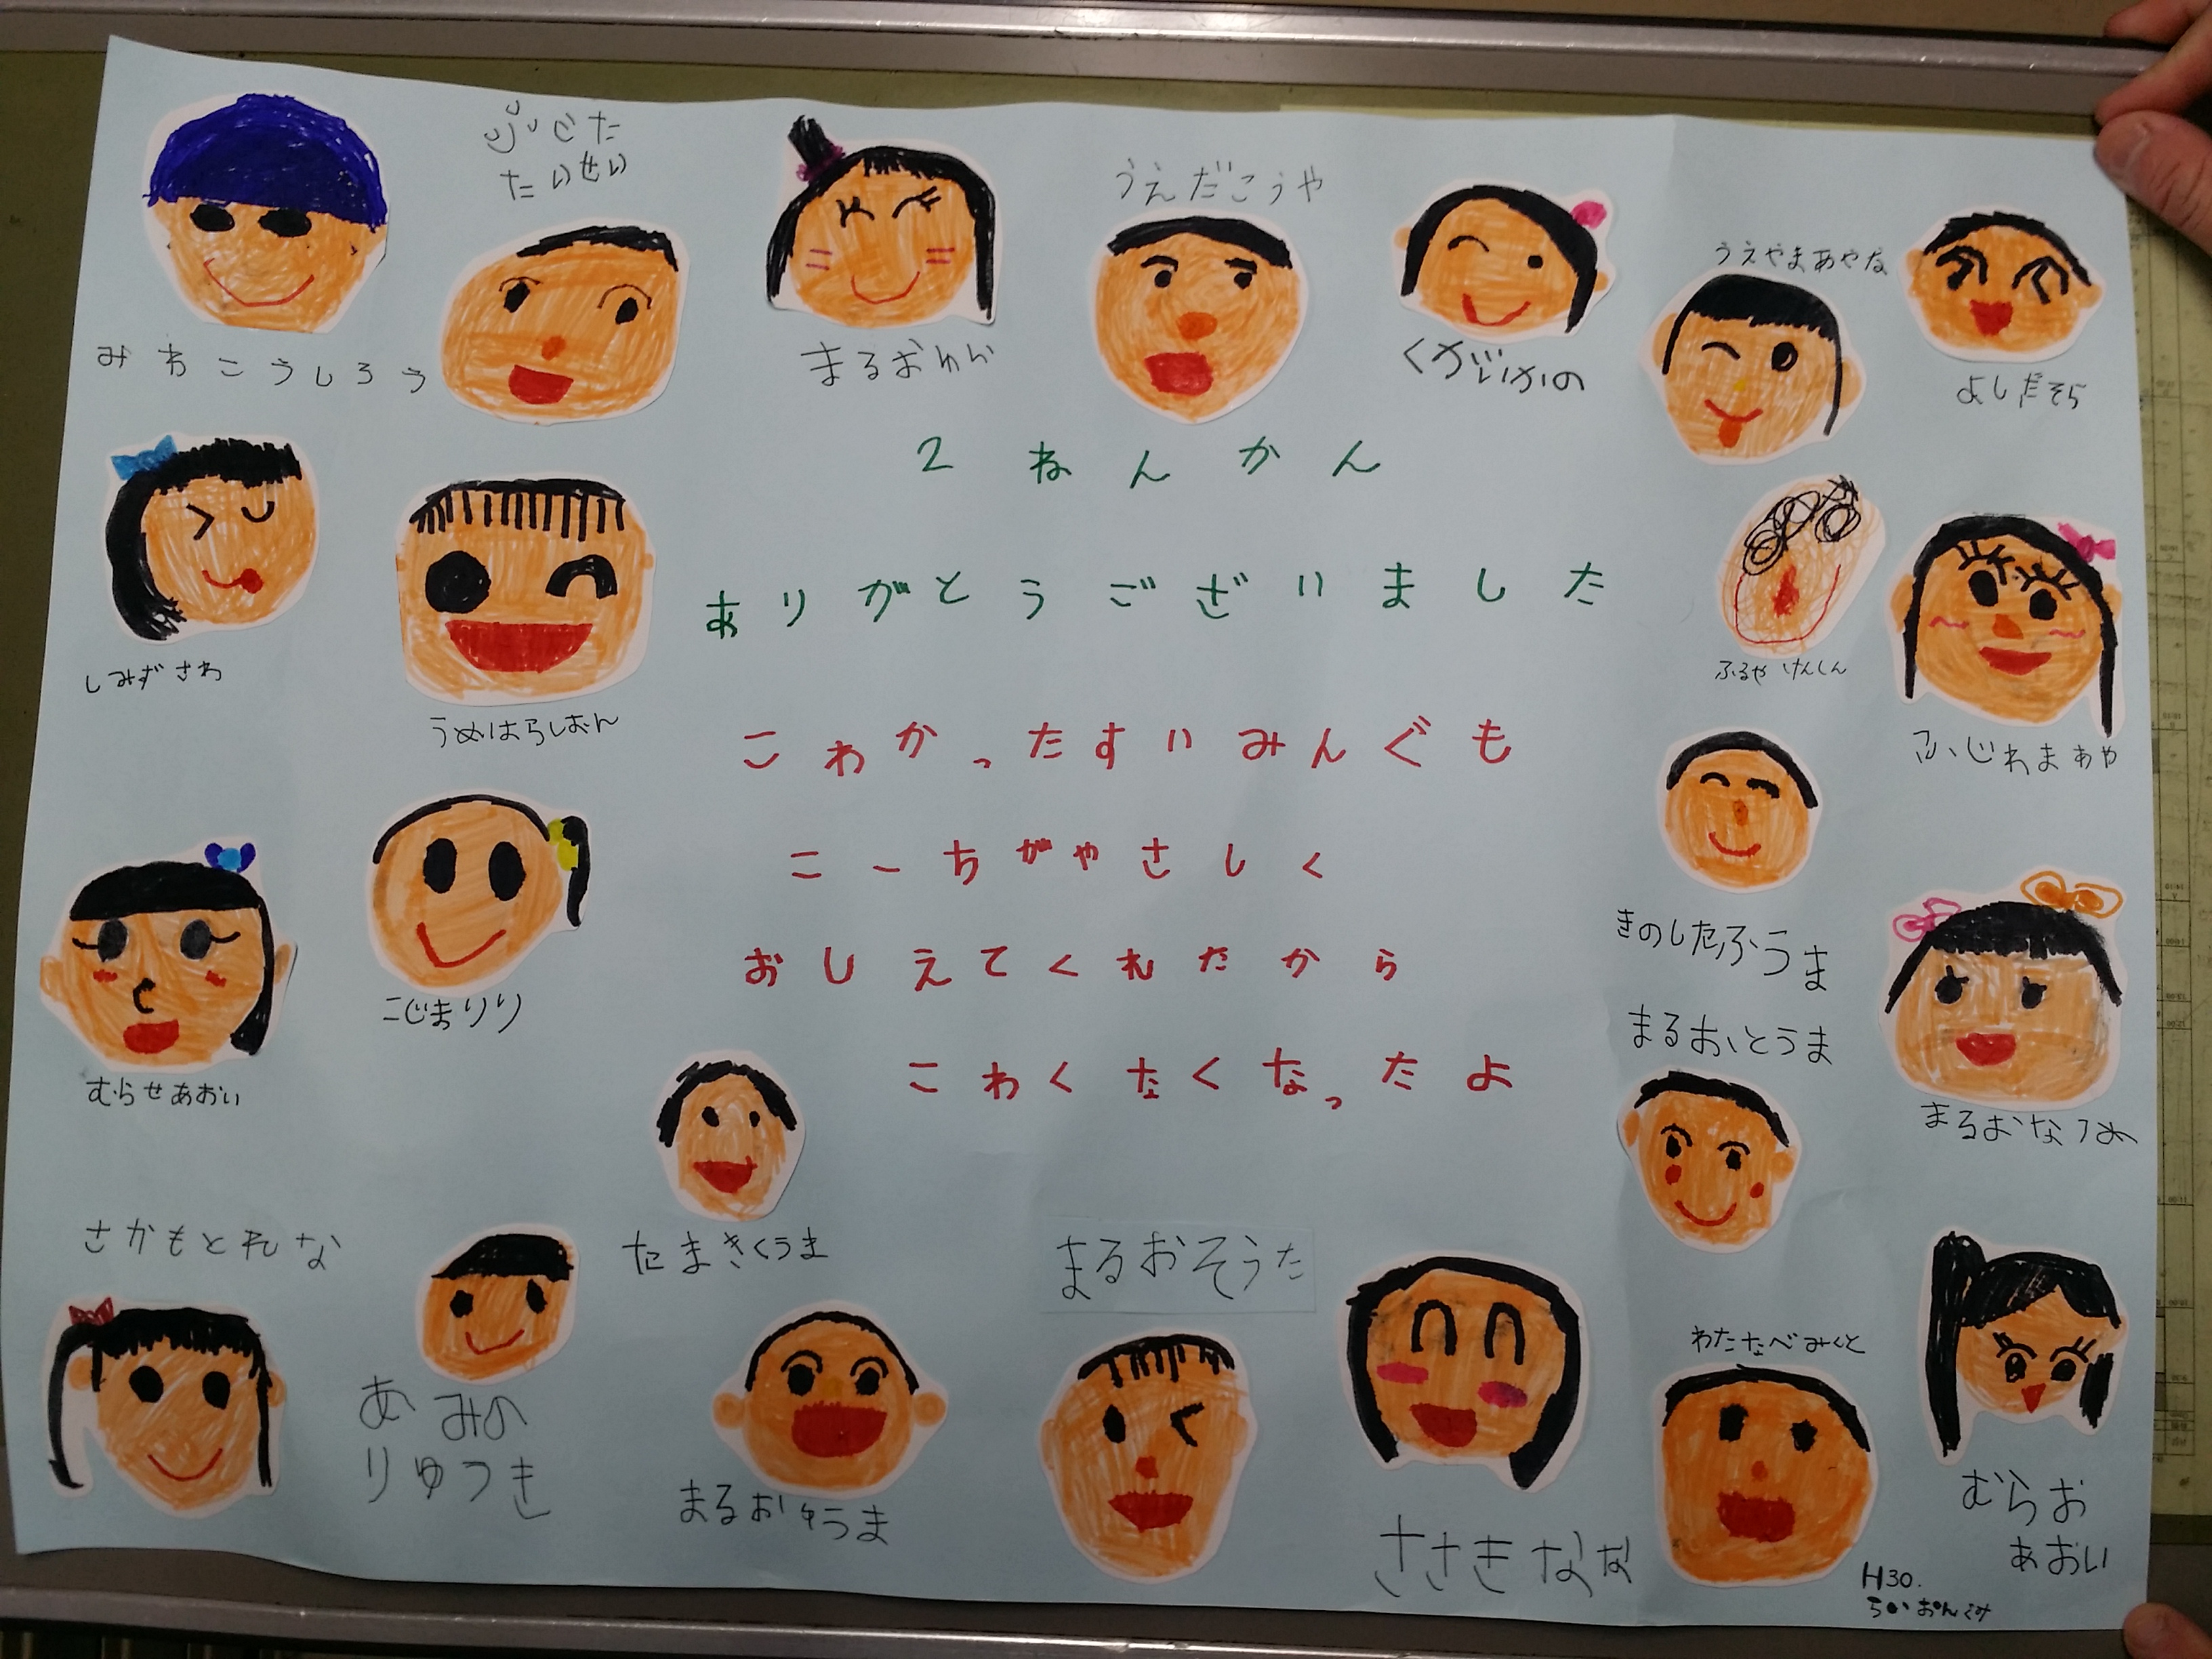 ふじた
たいせい
みわこうしろう
まるおゆい
うえだこうや
くがいかの
うえやまあやな
よしだそら
2ねんかん
ありがとうございました
こわかったすいみんぐも
こーちがやさしく
おしえてくれたから
こわくなくなったよ
しみずさわ
うめはらしおん
ふるやけんしん
ふじわまあや
むらせあおい
こじまりり
きのしたふうま
まるおとうま
まるおなつめ
さかもとれな
あみの
りゅうき
たまきくうま
まるおゆうま
まるおそうた
ささきなな
わたなべみくと
むらお
あおい
H30.
らいおんぐみ